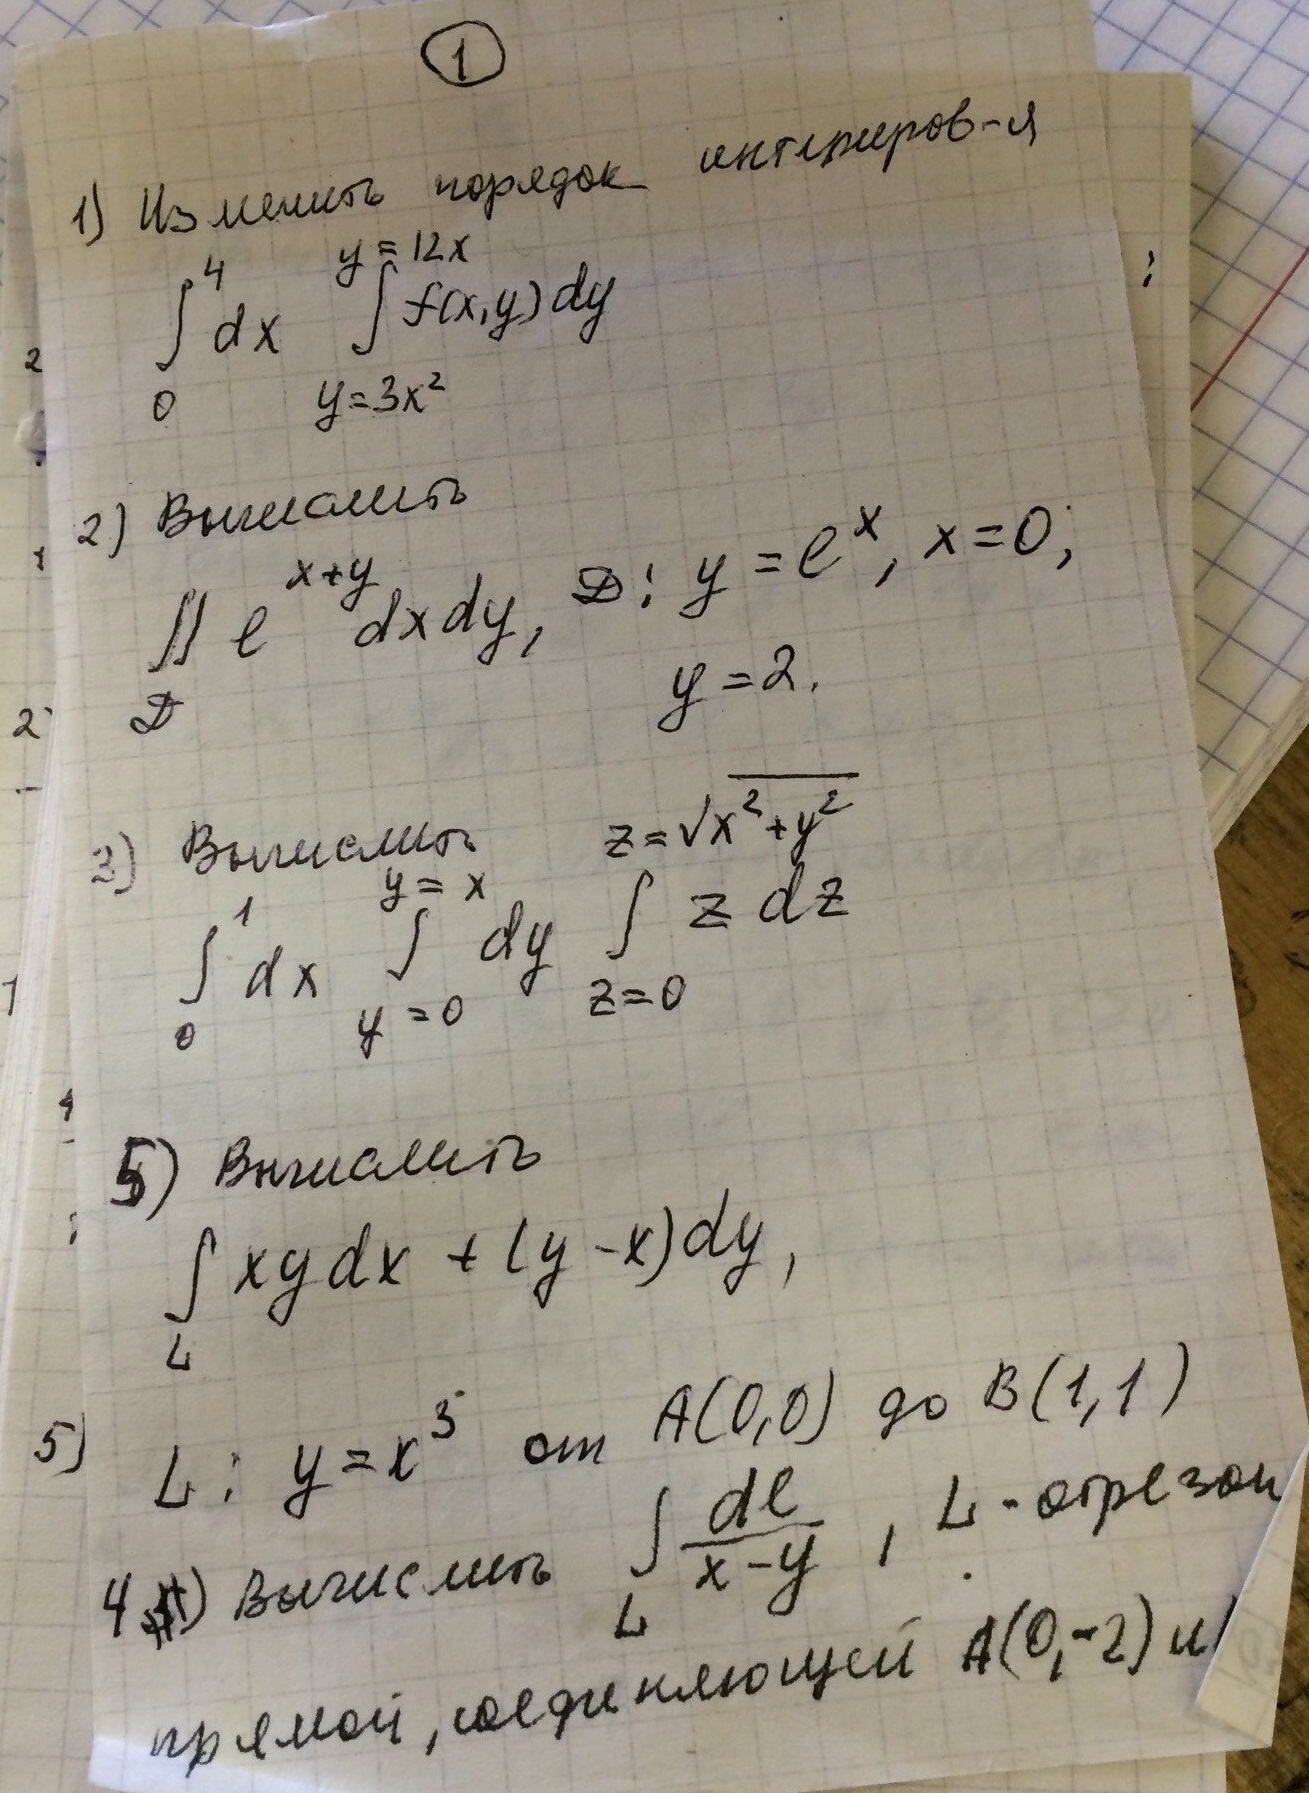 1
1) Изменить порядок интегриров-я
∫₀⁴ dx ∫_{y=3x²}^{y=12x} f(x,y) dy
2) Вычислить
∬_D e^{x+y} dx dy, D: y = e^x, x = 0;
y = 2.
3) Вычислить
∫₀¹ dx ∫_{y=0}^{y=x} dy ∫_{z=0}^{z=√(x²+y²)} z dz
5) Вычислить
∫_L xy dx + (y - x) dy,
5) L: y = x³ от A(0,0) до B(1,1)
4) Вычислить ∫_L dl/(x-y), L - отрезок
прямой, соединяющей A(0,-2) и